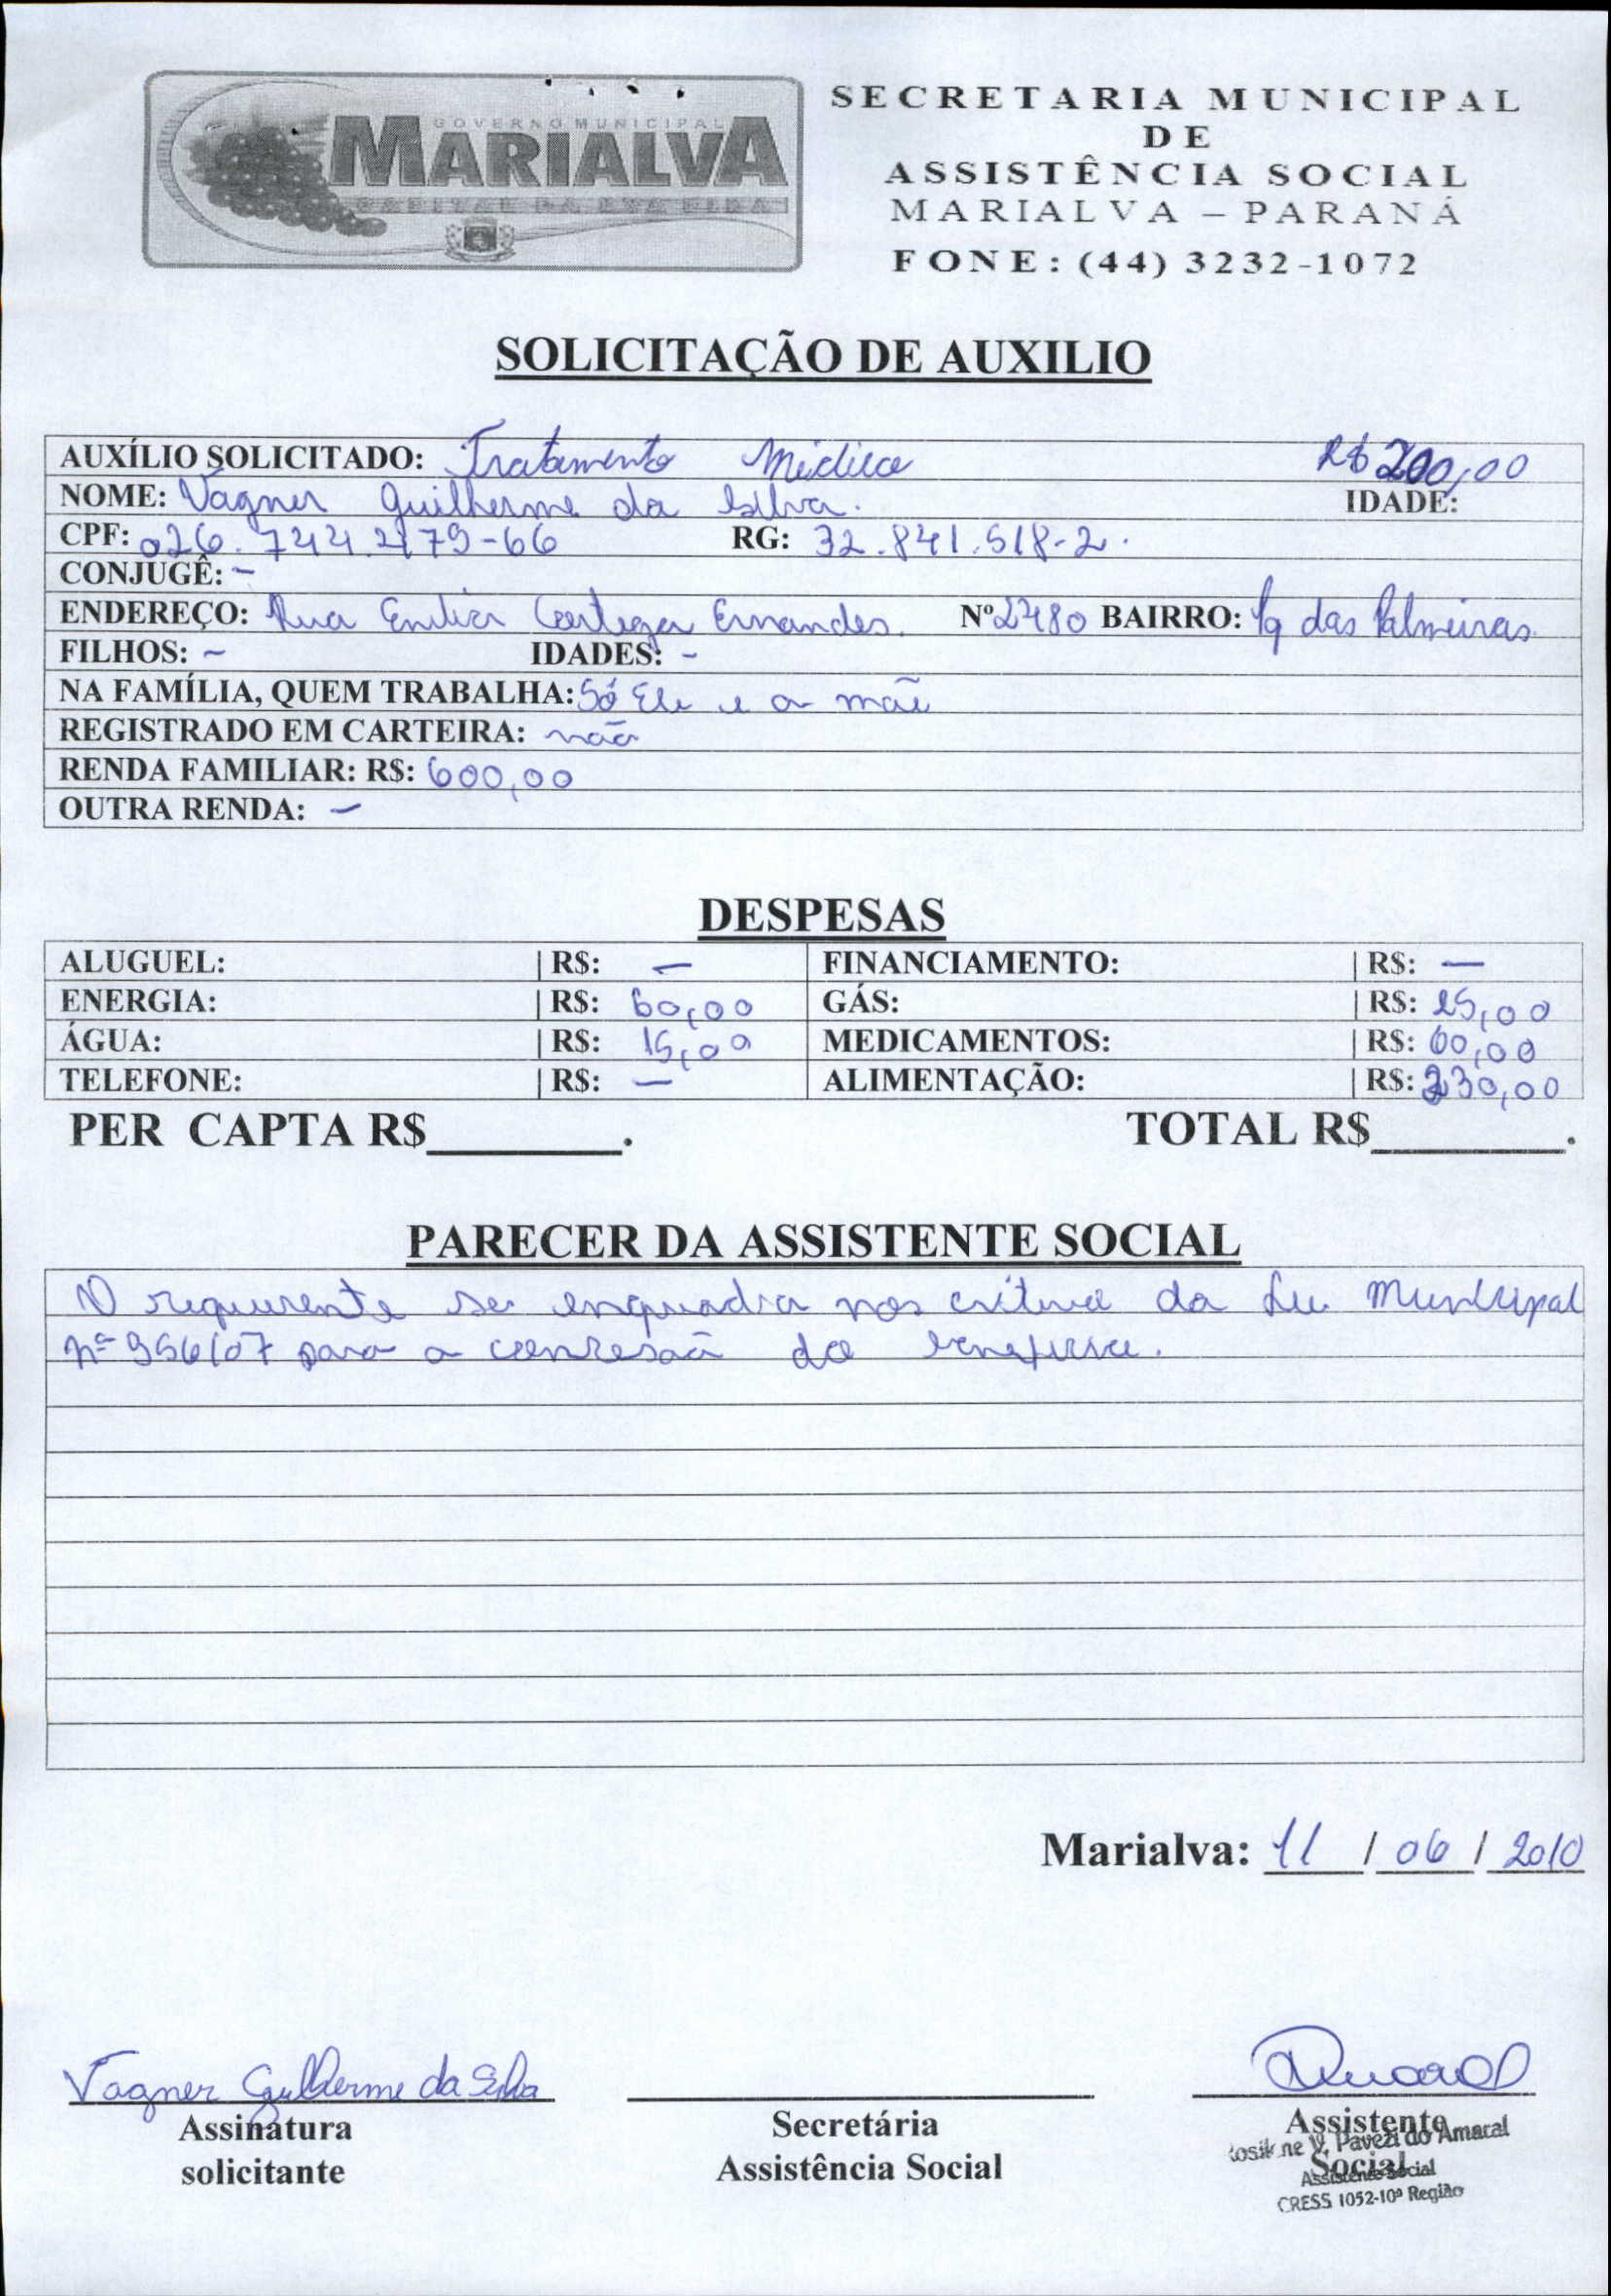 GOVERNO MUNICIPAL
MARIALVA
CAPITAL DA UVA FINA
SECRETARIA MUNICIPAL
DE
ASSISTÊNCIA SOCIAL
MARIALVA – PARANÁ
FONE: (44) 3232-1072
SOLICITAÇÃO DE AUXILIO
AUXÍLIO SOLICITADO: Tratamento Médico R$ 200,00
NOME: Vagner Guilherme da Silva. IDADE:
CPF: RG: 32.841.518-2.
CONJUGÊ: -
ENDEREÇO: Rua Emilia Ernandes. Nº 2480 BAIRRO: Pq das Palmeiras.
FILHOS: - IDADES: -
NA FAMÍLIA, QUEM TRABALHA: Só Ele e a mãe
REGISTRADO EM CARTEIRA: não
RENDA FAMILIAR: R$: 600,00
OUTRA RENDA: -
DESPESAS
ALUGUEL: R$: — FINANCIAMENTO: R$: —
ENERGIA: R$: 60,00 GÁS: R$: 25,00
ÁGUA: R$: 15,00 MEDICAMENTOS: R$: 60,00
TELEFONE: R$: — ALIMENTAÇÃO: R$: 230,00
PER CAPTA R$________. TOTAL R$________.
PARECER DA ASSISTENTE SOCIAL
O requerente se enquadra nos da Lei Municipal
nº 956/07 para a do beneficio.
Marialva: 11 / 06 / 2010
Vagner Guilherme da Silva
Assinatura
solicitante
Secretária
Assistência Social
Assistente
Social
V. Pavezi do Amaral
Assistente Social
CRESS 1052-10ª Região